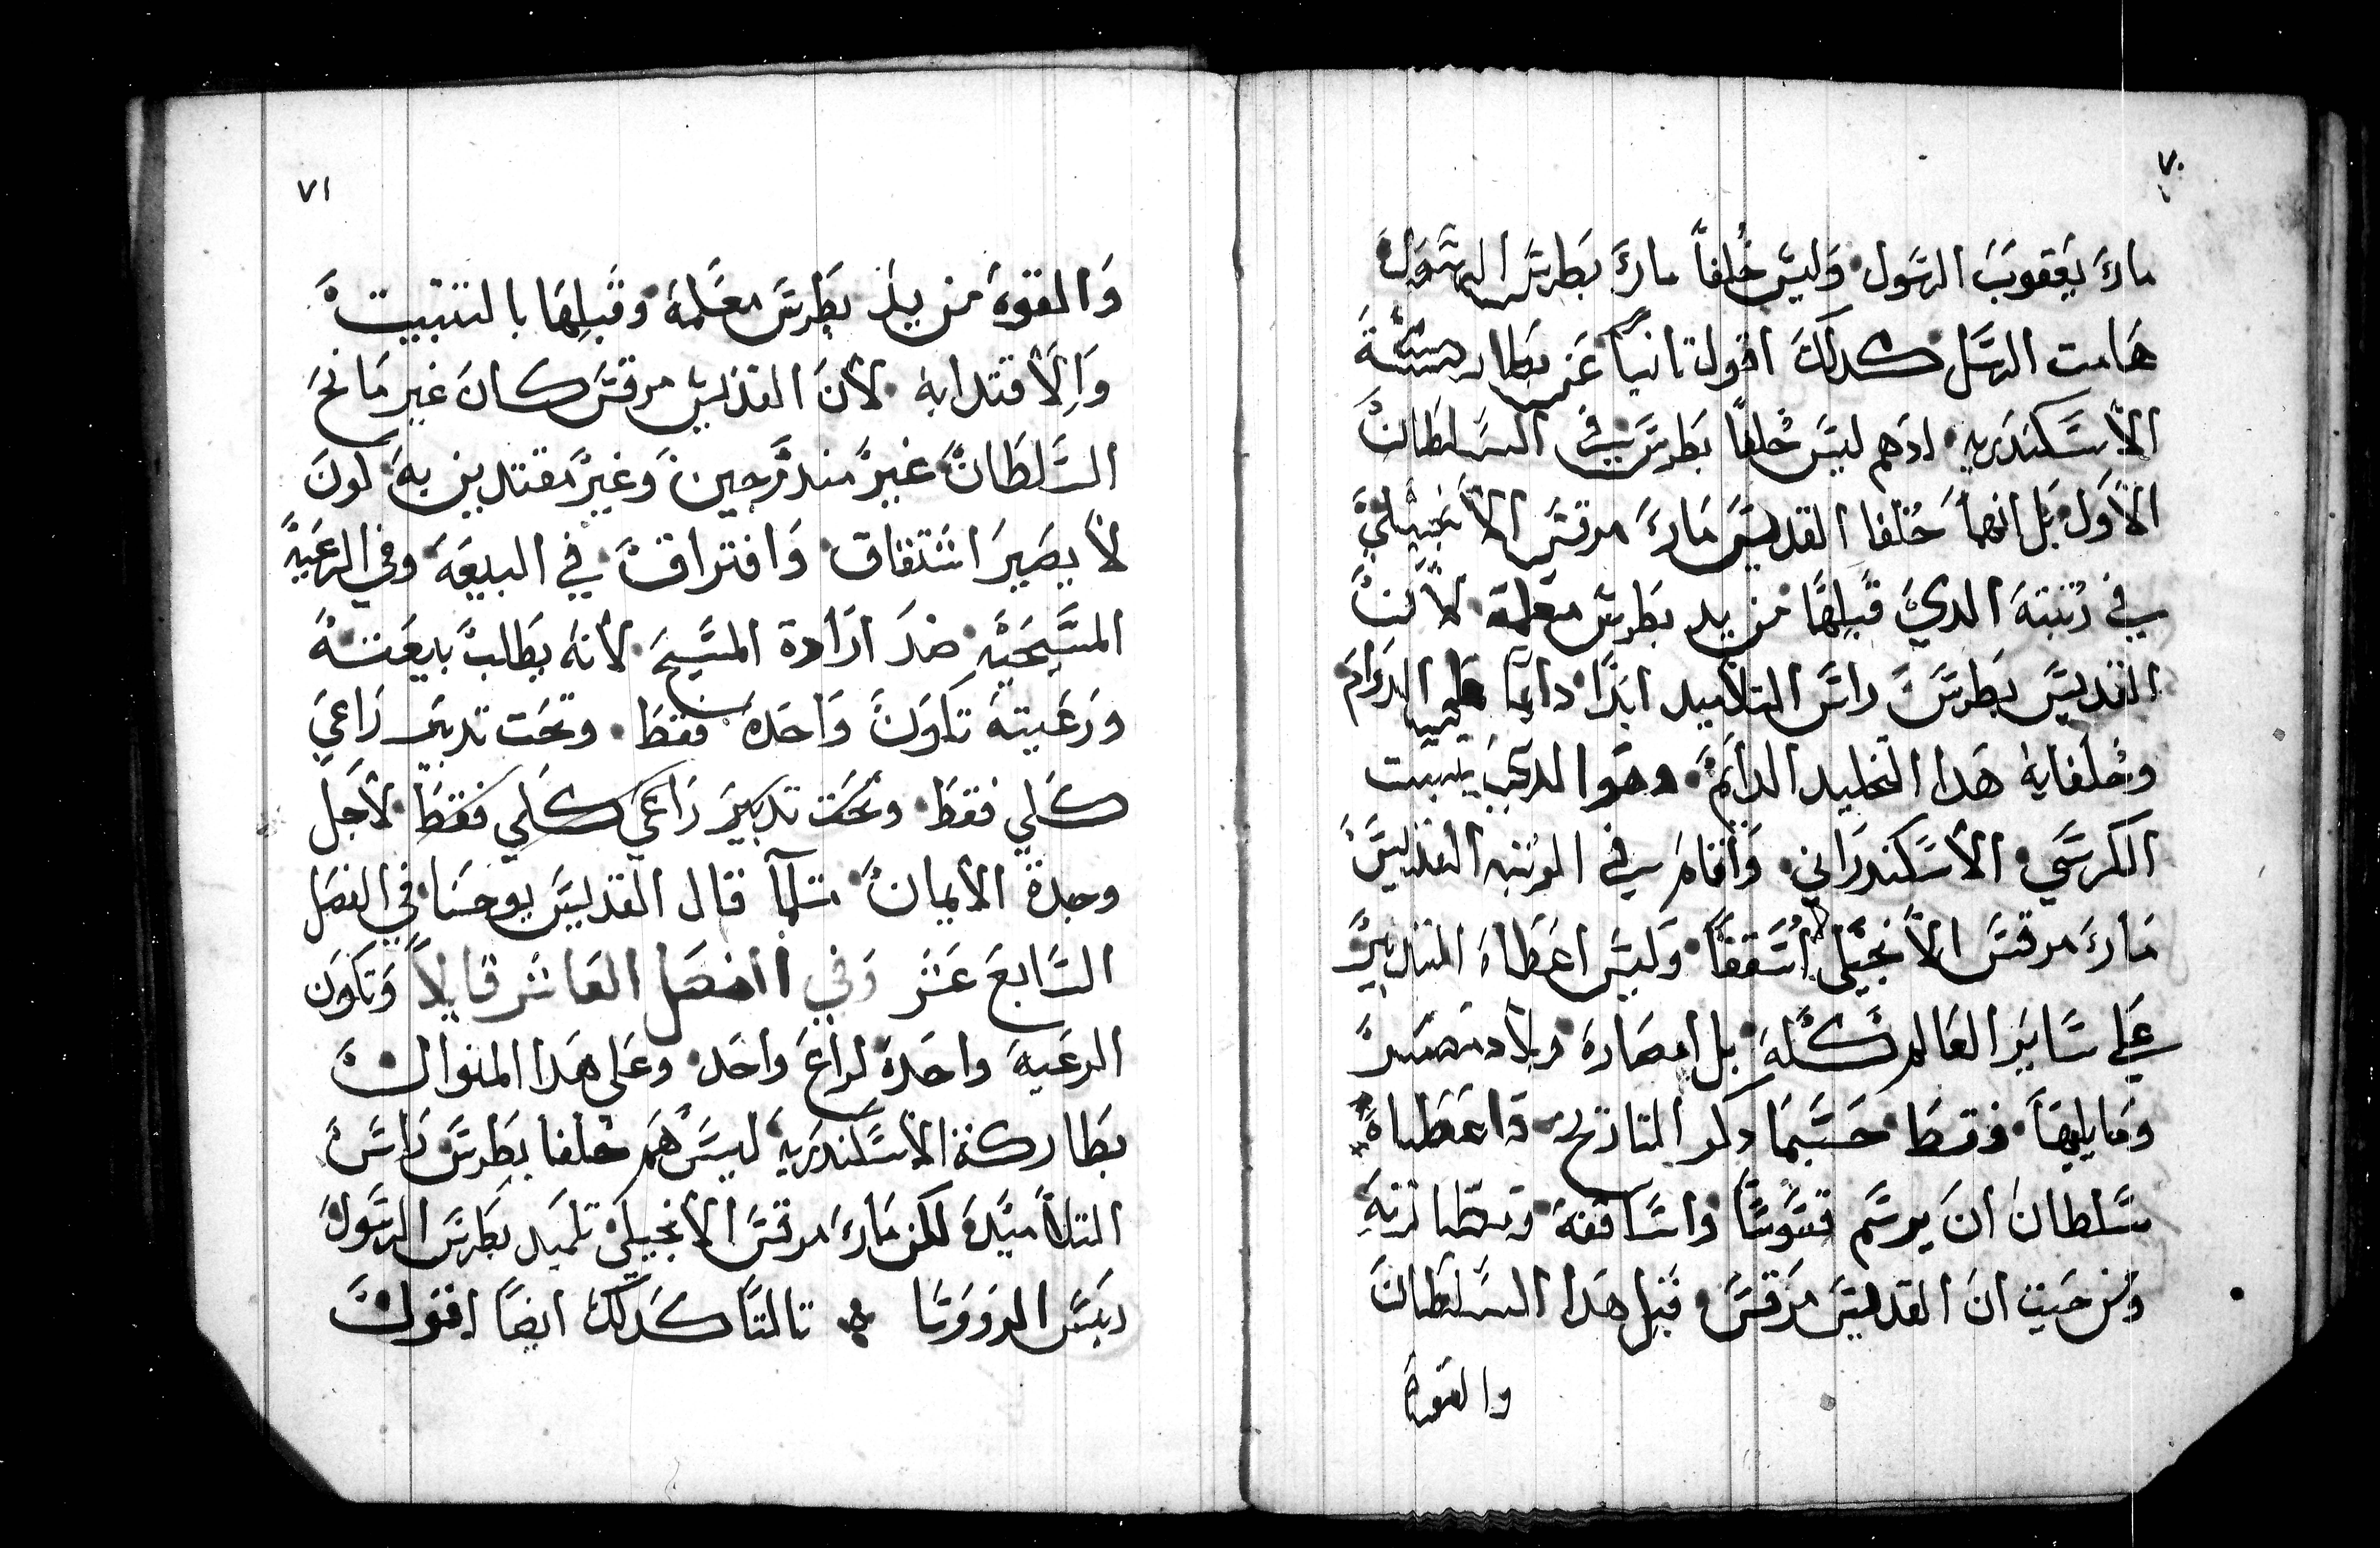 ٧٠
مارَي يعقوبَ الرسَول وَليسَ خُلفاً ماريَ بَطرسَ الرسَول
هَامت الرسَل كدلكَ اقول تانياً عَن بطاركة
الاسَكندَريه ادهم ليسَ خُلفاً بَطرسَ في السَلطانَ
الاوَل بَل انهمَا خُلفا القديسَ مَاريَ مرقسَ الانجيليَ
في رُتبتهَ الديَ قَبلهَا من يد بطرسَ معلمهَ لانَ
القديسَ بَطرسَ راسَ التلاميد ابدًا دايمًا الدوَامَ
وخُلفايهَ هَدا التخليد الدايمَ وهوا الديَ
الكرسَي الاسَكندرَاني وَاقامَ في الرُتبه القديسَ
مَاريَ مرقسَ الانجيلي اسَقفاً وَليسَ اعطاهَ التدبيرَ
عَلي سَايرَ العَالم كُلهَ بل مصَارهَ وبلاد مصَرَ
وَمَا يليهَا فقطَ حَسَبمَا دكر التاريخَ وَاعَطَاهَ
سَلطانَ انَ يرسَم قسَوسًا واسَاقفهَ ومطارنهَ
وَمن حَيت انَ القديسَ مَرقسَ قبل هَدا السَلطَانَ
والقوهَ
٧١
وَالقوهَ من يدَ بطرسَ معَلمهَ وقَبلهَا بالتتبيتَ
وَالاقتدا بهَ لانَ القديسَ مرقسَ كانَ غير مَانحَ
السَلطَانَ غيرَ مندرَجينَ وَغيرَ مقتديين بهَ لونَ
لا يصَيرَ اشتقاق وَافتراقَ في البيعَهَ وفي الرعَيهَ
المسَيحَيهَ ضدَ ارادة المسَيحَ لانهَ يَطالبَ بيعَتهَ
ورَعَيتهَ تكوَنَ وَاحَدهَ فقطَ وتحَت تدبيَر رَاعيَ
كلَي فقطَ وتحَت تدبيرَ رَاعَي كلَي فقطَ لاجَل
وحدةَ الايمانَ متلمَا قال القديسَ يوحَنا في الفصَل
السَابعَ عَشر وَفي الفصَل العَاشر قايلاً وَتكوَن
الرعَيهَ واحَدهَ لراعَ واحَد وعَلي هَدا المنوالَ
بطَاركة الاسَكندَريهَ ليسَ هَم خُلفا بطرسَ رَاسَ
التلاميَدهَ لكن مَاريَ مرقسَ الانجيليَ تلميَد بَطرسَ الرسَولَ
ريَسَ الروَوَسَا تالتًا كدلكَ ايضًا اقولَ